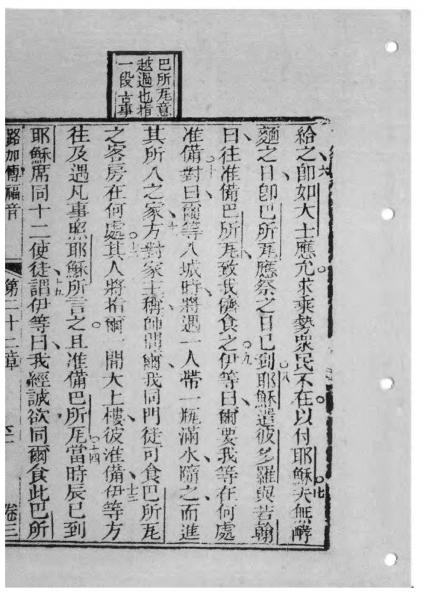 巴所瓦意
越過也指
一段古事
給之卽如大士應允求乘勢衆民不在以付耶穌夫無酵
麵之日卽巴所瓦應祭之日已到耶穌遣彼多羅與若翰
曰往准備巴所瓦致我儕食之伊等曰爾要我等在何處
准備對曰爾等入城時將遇一人帶一瓶滿水隨之而進
其所入之家方對家主稱師謂爾我同門徒可食巴所瓦
之客房在何處其人將指爾一開大上樓彼准備伊等方
往及遇凡事照耶穌所言之且准備巴所瓦當時辰已到
耶穌席同十二使徒謂伊等曰我經誠欲同爾食此巴所
路加傳福音 第二十二章 卷三